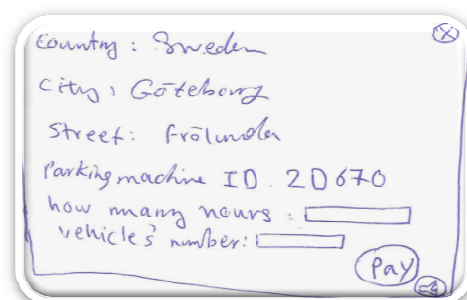 Country: Sweden
City: Göteborg
Street: Frölunda
Parking machine ID. 2D670
how many hours:
vehicles' number:
Pay